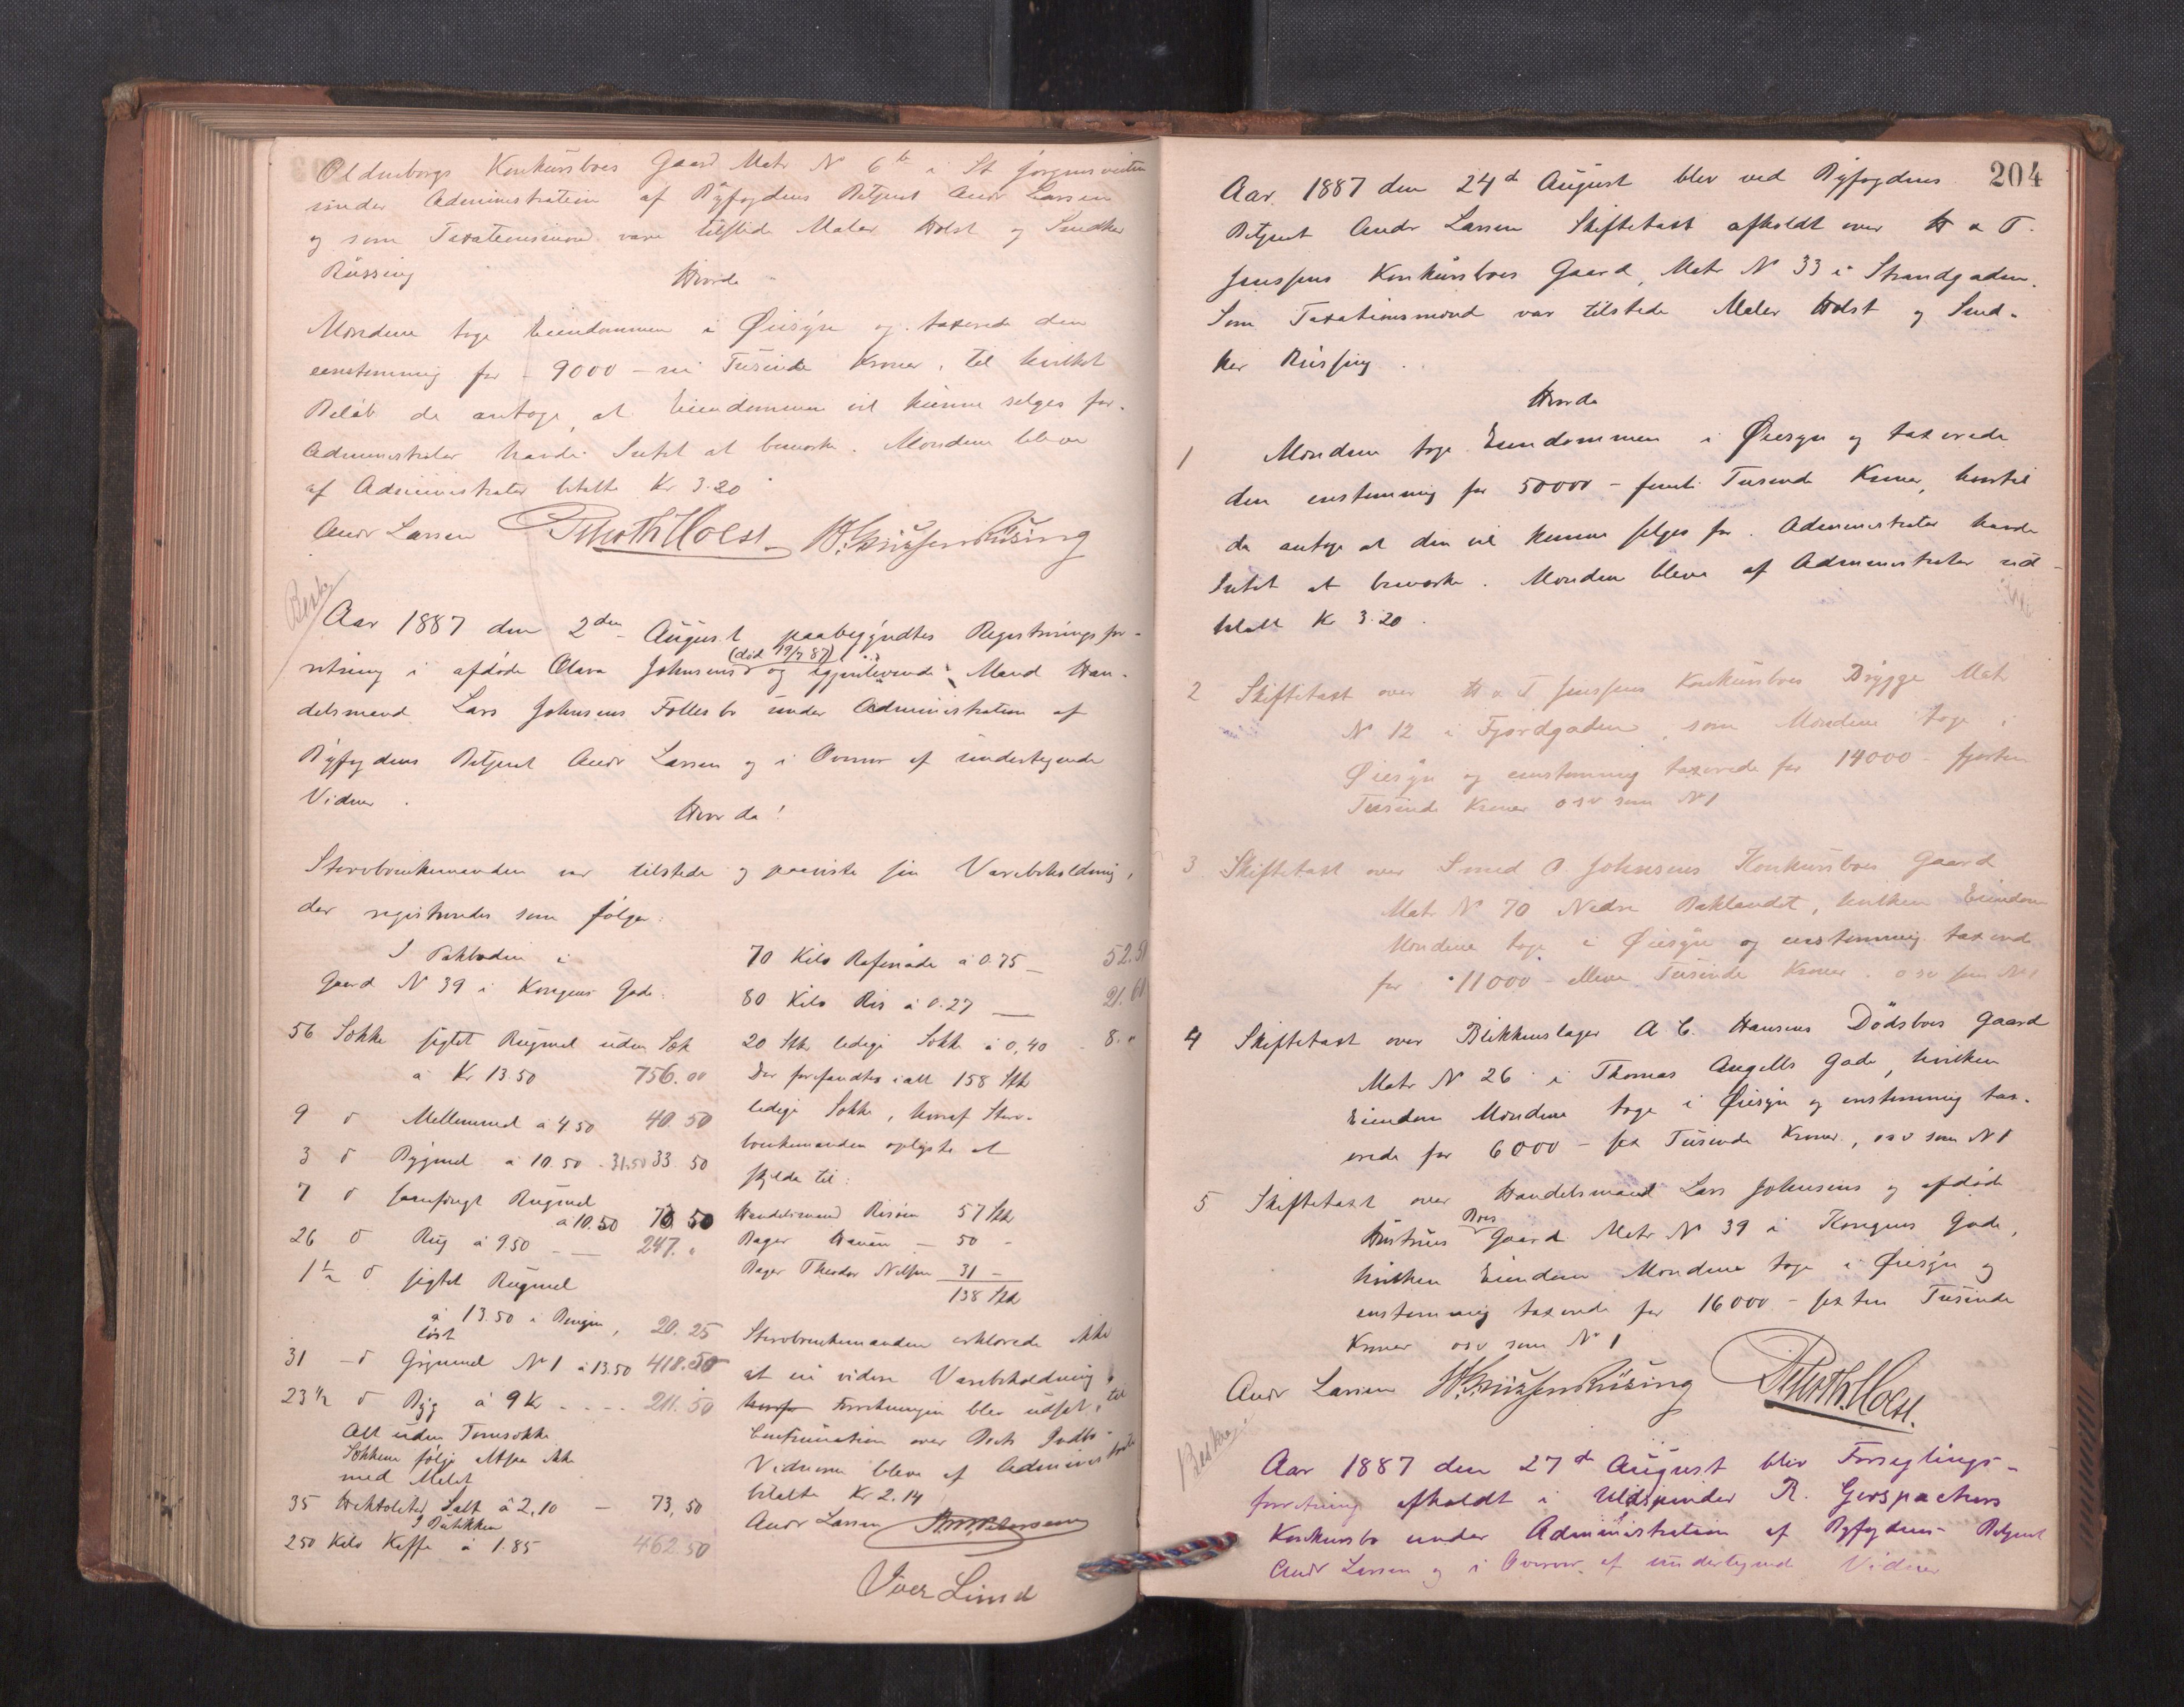 Oldenborgs Konkursboes Gaard Matr N 6 b i St Jørgensveiten
under Administration af Byfogdens Betjent Andr Larsen
og som Taxationsmænd vare tilstede Maler Holst og Snedker
Rüssing
Hvorda
Mændene toge Eiendommen i Øiesyn og taxerede den
eenstemmig for - 9000 - ni Tusinde Kroner, til hvilket
Beløb de antoge, at Eiendommen vil kunne selges for.
Administrator havde Intet at bemærke. Mændene bleve
af Administrator betalte Kr 3.20
Andr Larsen
Aar 1887 den 2den August paabegyndtes Registreringsfor-
retning i afdøde Olava Johnsens (død 19/7 87) og igjenlevende Mand Han-
delsmand Lars Johnsens Fællesbo under Administration af
Byfogdens Betjent Andr Larsen og i Overvær af undertegnede
Vidner.
Hvorda!
Stervboenkemanden var tilstede og paaviste sin Varebeholdning,
der registreredes som følger:
I Pakboden i
Gaard N 39 i Kongens Gade:
56 Sække sigtet Rugmel uden Sæk
à Kr 13.50 756.00
9 d Mellemmel à 4 50 40.50
3 d Bygmel à 10.50 - 31.50 33 50
7 d sammensigt Rugmel
à 10.50 73 50
26 d Rug à 9.50 - 247. "
1 1/2 d sigtet Rugmel
à 13.50 i Bingen, 20.25
løst
31 - d Grynmel N 1 à 13.50 418.50
23 1/2 d Byg à 9 Kr - - - - 211.50
Alt uden Tomsække
Sækkene følge altsaa ikke
med Melet
35 Hektoliter Salt à 2,10 - 73,50
I Butikken
250 Kilo Kaffe à 1.85 462.50
70 Kilo Rafinade à 0.75 - 52.50
80 Kilo Ris à 0.27 - 21.60
20 Stk ledige Sække à 0,40 - 8. "
Der forefandtes ialt 158 Stk
ledige Sække, hvoraf Sterv-
boenkemanden oplyste at
skylde til:
Handelsmand Risøen 57 Stk
Bager Hansen - 50 -
Bager Theodor Nilssen 31 -
138 Stk
Stervboenkemanden erklærede ikke
at eie videre Varebeholdning
Forretningen blev udsat, til
Continuation over Boets Indbo-
Vidnerne bleve af Administrator
betalte Kr 2.14
Andr Larsen
Iver Lund
204
Aar 1887 den 24d August blev ved Byfogdens
Betjent Andr Larsen Skiftetaxt afholdt over H & T.
Jenssens Konkursboes Gaard, Matr N 33 i Strandgaden.
Som Taxationsmænd var tilstede Maler Holst og Sned-
ker Rüssing.
Hvorda
1 Mændene toge Eiendommen i Øiesyn og taxerede
den enstemmig for 50000 - femti Tusinde Kroner, hvortil
de antoge at den vil kunne selges for. Administrator havde
Intet at bemærke. Mændene bleve af Administrator ud-
betalt Kr 3.20.
2 Skiftetaxt over H & T Jenssens Konkursboes Brygge Matr
N 12 i Fjordgaden, som Mændene toge i
Øiesyn og eenstemmig taxerede for 14000 - fjorten
Tusinde Kroner osv som N 1
3 Skiftetaxt over Smed O Johnsens Konkursboes Gaard
Matr N 70 Nedre Baklandet, hvilken Eiendom
Mændene toge i Øiesyn og enstemmig taxerede
for 11000 - elleve Tusinde Kroner. osv som N 1
4 Skiftetaxt over Blikkenslager A. C. Hansens Dødsboes Gaard
Matr N 26 i Thomas Angells Gade, hvilken
Eiendom Mændene toge i Øiesyn og enstemmig tax-
erede for 6000 - sex Tusinde Kroner, osv som N 1
5 Skiftetaxt over Handelsmand Lars Johnsens og afdøde
Hustrues Boes Gaard Matr N 39 i Kongens Gade,
hvilken Eiendom Mændene toge i Øiesyn og
enstemmig taxerede for 16000 - sexten Tusinde
Kroner osv som N 1
Andr Larsen
Aar 1887 den 27de August blev Forseglings-
forretning afholdt i Uldspinder R. Gerspachers
Konkursbo under Administration af Byfogdens Betjent
Andr Larsen og i Overvær af undertegnede Vidner